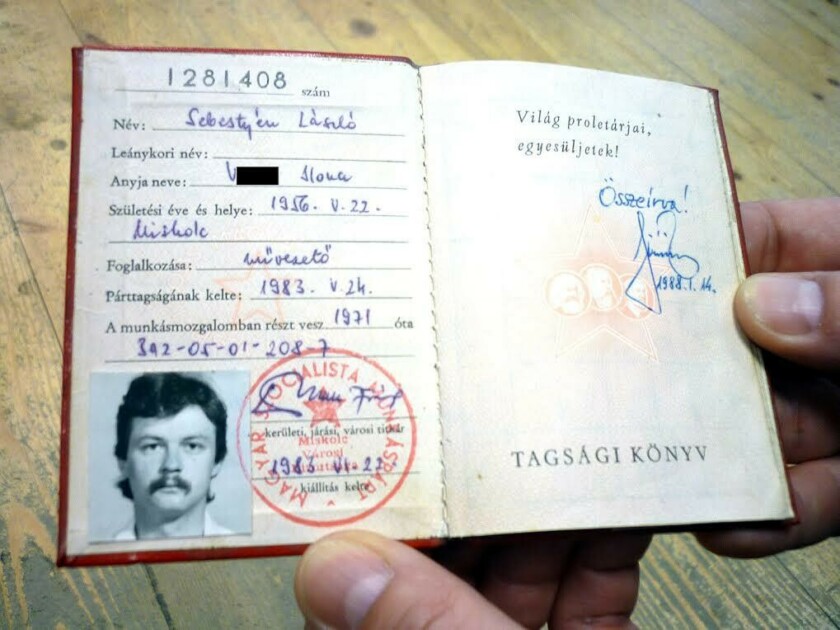 1281408 szám
Név: Sebestyén László
Leánykori név:
Anyja neve: V Ilona
Születési éve és helye: 1956. V. 22.
Miskolc
Foglalkozása: művezető
Párttagságának kelte: 1983. V. 24.
A munkásmozgalomban részt vesz 1971 óta
392-05-01-208-7
MAGYAR SZOCIALISTA MUNKÁSPÁRT
kerületi, járási, városi titkár
Miskolc
Városi
1983. VI. 22.
kiállítás kelte
Világ proletárjai,
egyesüljetek!
Összeírva!
1988. I. 14.
TAGSÁGI KÖNYV